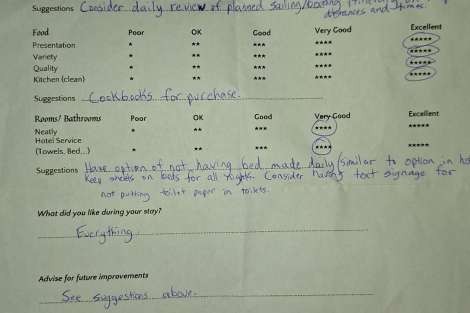 Suggestions Consider daily review of planned sailing/boating
distances and times.
Food Poor OK Good Very Good Excellent
Presentation * ** *** **** *****
Variety * ** *** **** *****
Quality * ** *** **** *****
Kitchen (clean) * ** *** **** *****
Suggestions Cookbooks for purchase.
Rooms/ Bathrooms Poor OK Good Very Good Excellent
Neatly * ** *** **** *****
Hotel Service
(Towels, Bed...) * ** *** **** *****
Suggestions Have option of not having bed made daily (similar to option in
Keep sheets on beds for all nights. Consider having text signage for
not putting toilet paper in toilets.
What did you like during your stay?
Everything
Advise for future improvements
See suggestions above.